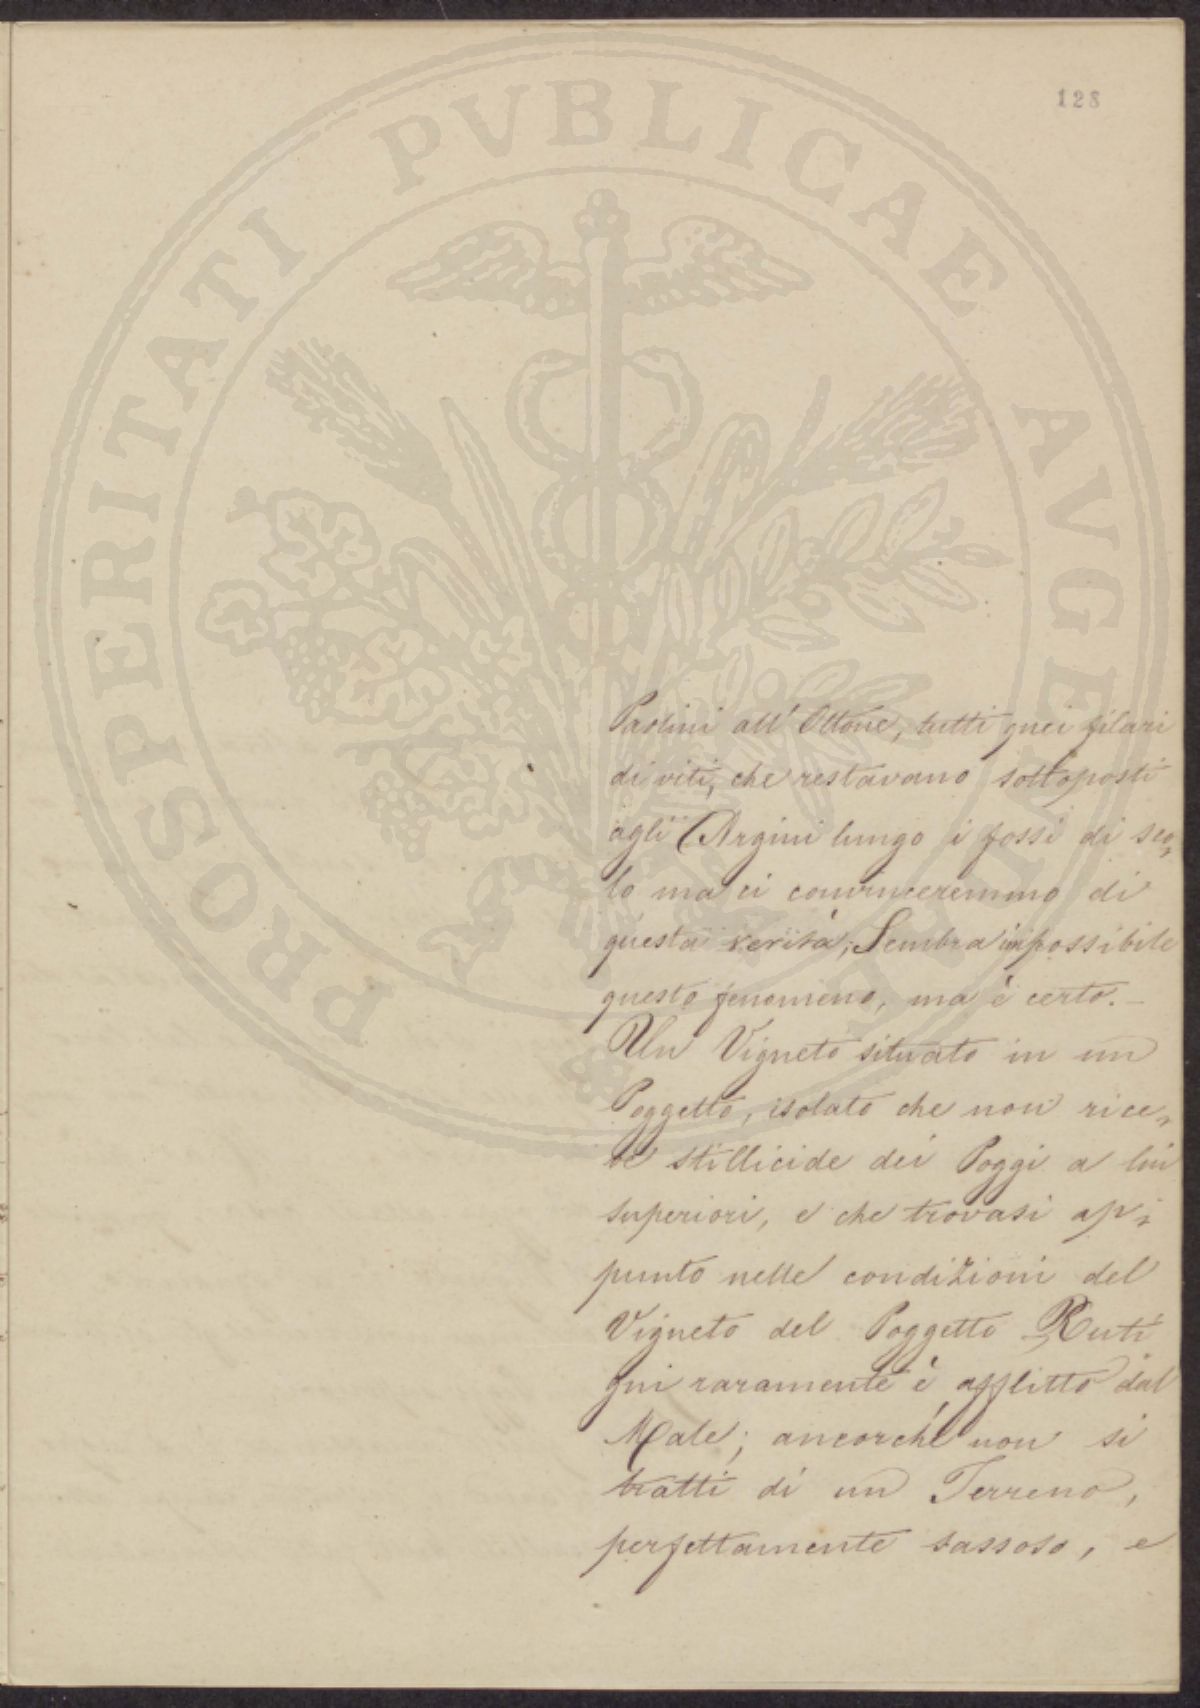 128
PROSPERITATI PVBLICAE AVGENDAE
Paolini all'Ottone, tutti quei filari
di viti, che restavano sottoposti
agli Argini lungo i fossi di sco„
lo ma ci convinceremmo di
questa verità; Sembra impossibile
questo fenomeno, ma è certo. –
Un Vigneto situato in un
Poggetto, isolato che non rice„
ve stillicide dei Poggi a lui
superiori, e che trovasi ap„
punto nelle condizioni del
Vigneto del Poggetto
qui raramente è afflitto dal
Male; ancorchè non si
tratti di un Terreno,
perfettamente sassoso, e